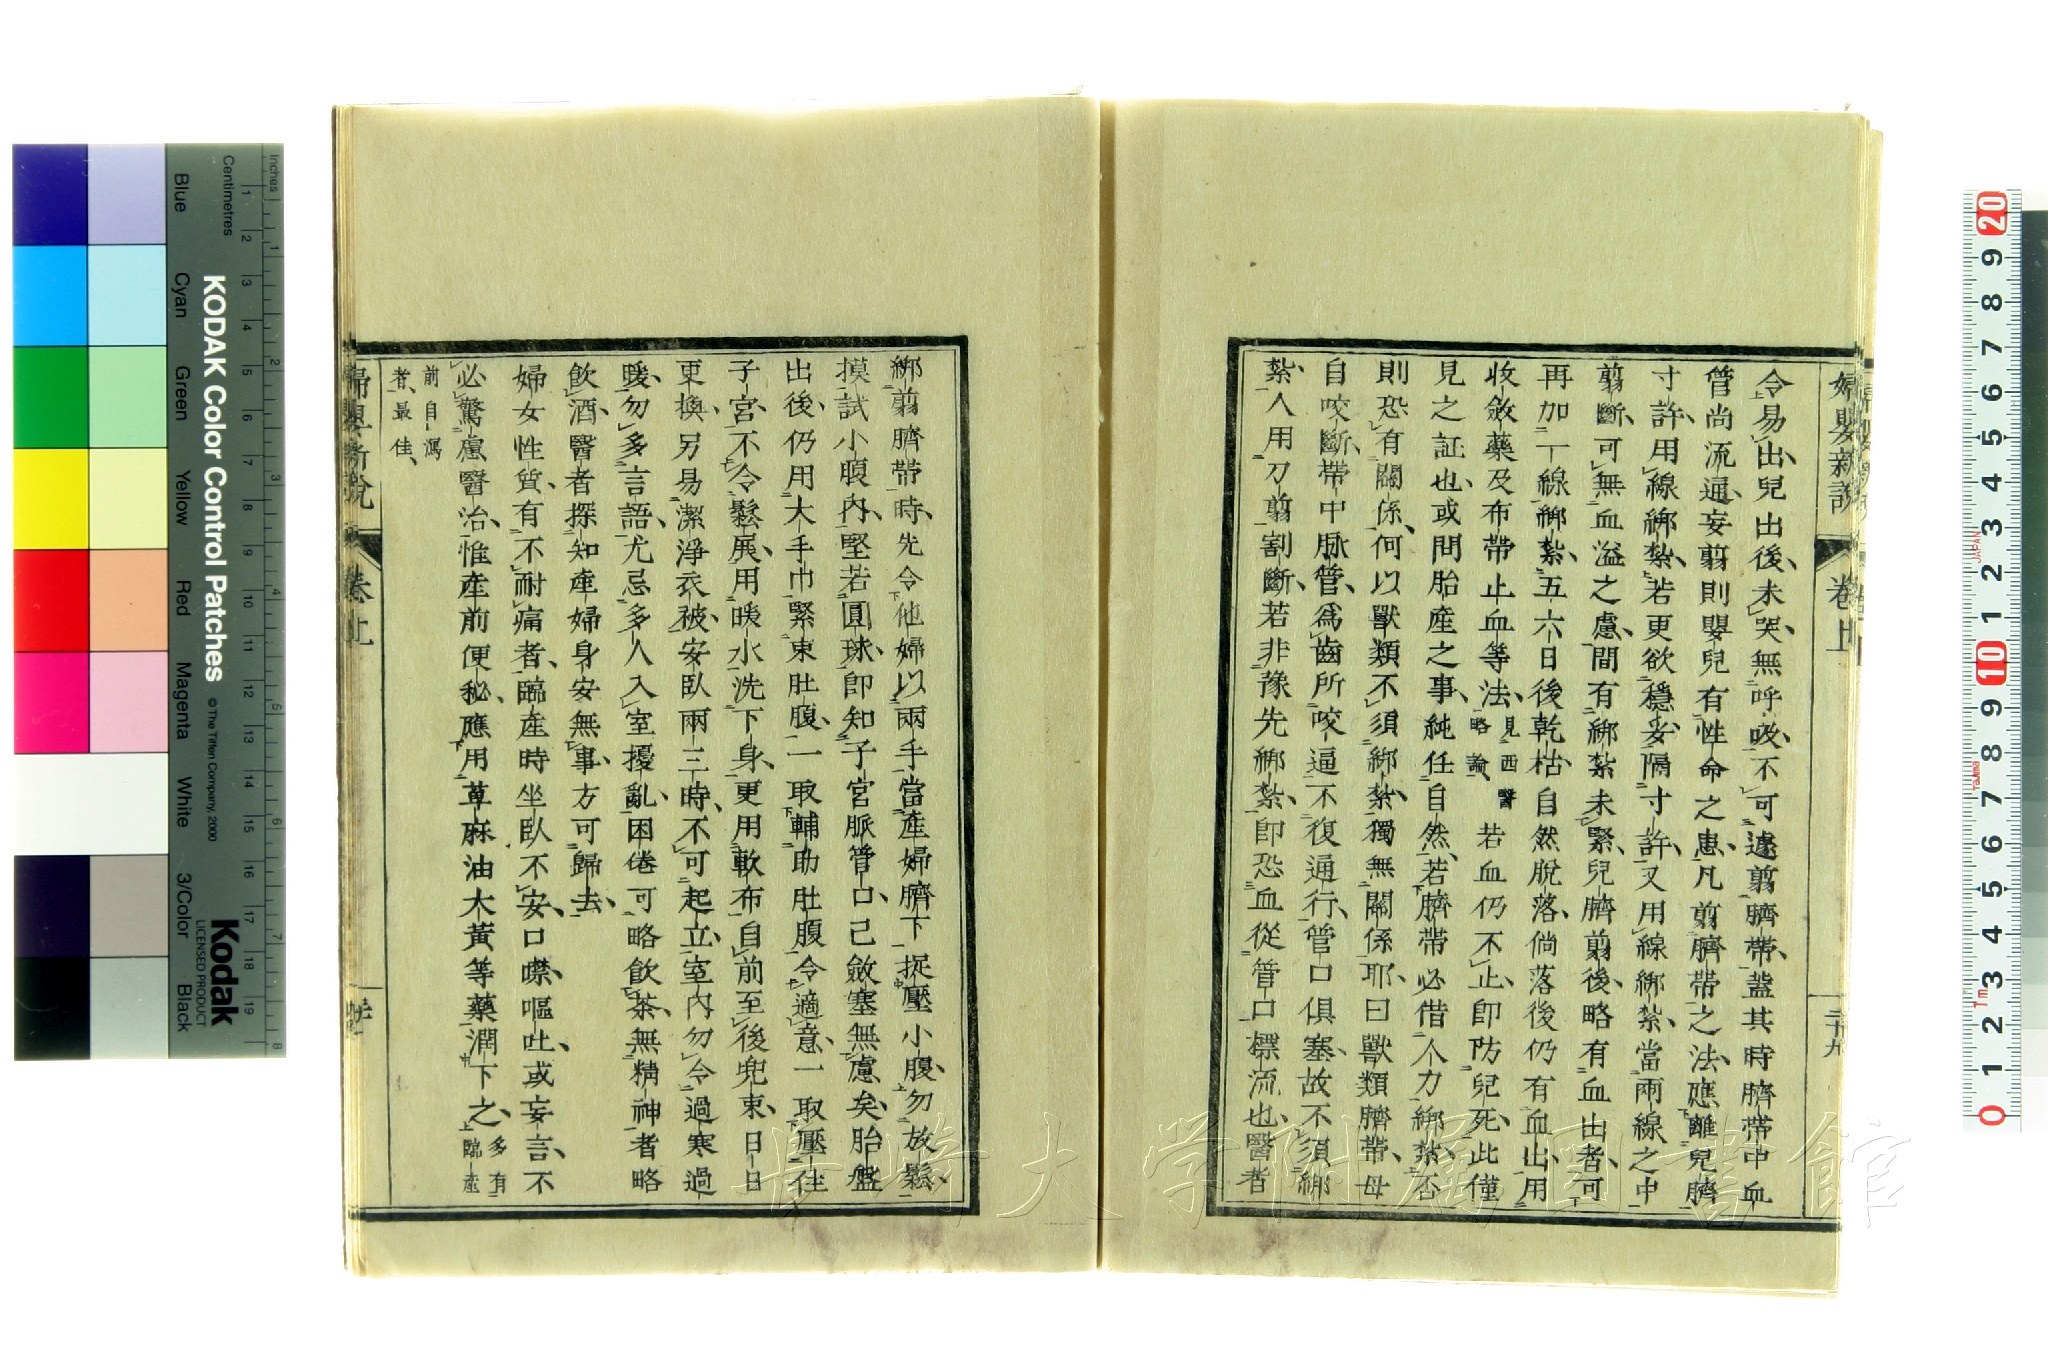 婦嬰新說
卷上
二十九
令易出兒出後未哭無呼吸不可遽剪臍帶蓋其時臍帶中血
管尚流通妄剪則嬰兒有性命之患凡剪臍帶之法應離兒臍
寸許用線綁紮若更欲穩妥隔寸許又用線綁紮當兩線之中
剪斷可無血溢之慮間有綁紮未緊兒臍剪後略有血出者可
再加一線綁紮五六日後乾枯自然脫落倘落後仍有血出用
收斂藥及布帶止血等法見西醫略論若血仍不止即防兒死此僅
見之証也或問胎產之事純任自然若臍帶必借人力綁紮否
則恐有關係何以獸類不須綁紮獨無關係耶曰獸類臍帶母
自咬斷帶中脉管為齒所咬逼不復通行管口俱塞故不須綁
紮人用刀剪割斷若非豫先綁紮即恐血從管口標流也醫者
綁剪臍帶時先令他婦以兩手當產婦臍下捉壓小腹勿放鬆
摸試小腹內堅若圓球即知子宮脈管口己斂塞無慮矣胎盤
出後仍用大手巾緊束肚腹一取輔助肚腹令適意一取壓住
子宮不令鬆展用暖水洗下身更用軟布自前至後兜束日日
更換另易潔淨衣被安臥兩三時不可起立室內勿令過寒過
暖勿多言語尤忌多人入室擾亂困倦可略飲茶無精神者略
飲酒醫者探知產婦身安無事方可歸去
婦女性質有不耐痛者臨產時坐臥不安口噤嘔吐或妄言不
必驚慮醫治惟產前便秘應用萆麻油大黃等藥潤下之多有臨產
前自瀉者最佳
婦嬰新說
卷上
長崎大学附属図書館
KODAK Color Control Patches
© The Tiffen Company, 2000
Kodak
LICENSED PRODUCT
Inches
Centimetres
Blue
Cyan
Green
Yellow
Red
Magenta
White
3/Color
Black
1 2 3 4 5 6 7 8 9 10 11 12 13 14 15 16 17 18 19
1 2 3 4 5 6 7 8
20 9 8 7 6 5 4 3 2 1 10 9 8 7 6 5 4 3 2 1 0
JAPAN
Tajima
Tm